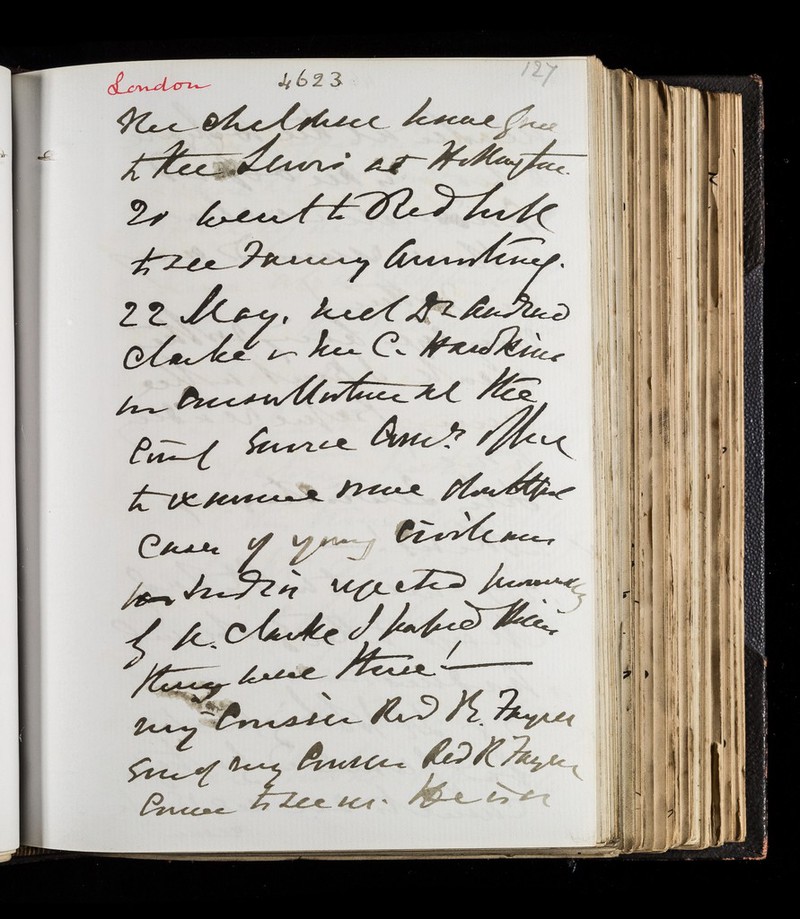 London 4623 127
The children have gone
to the Lewis' at
20 went to Redhill
to see Fanny Armstrong.
22 May. met Dr Andrew
Clarke & Mr C. Hawkins
in consultation at the
Civil Service Comrs. office
to examine some doubtful
cases of young civilians
for India rejected previously
by A. Clarke I passed them
they were three!
my Cousin Revd R. Fayrer
son of my Cousin Revd R Fayrer
came to see us. He is in